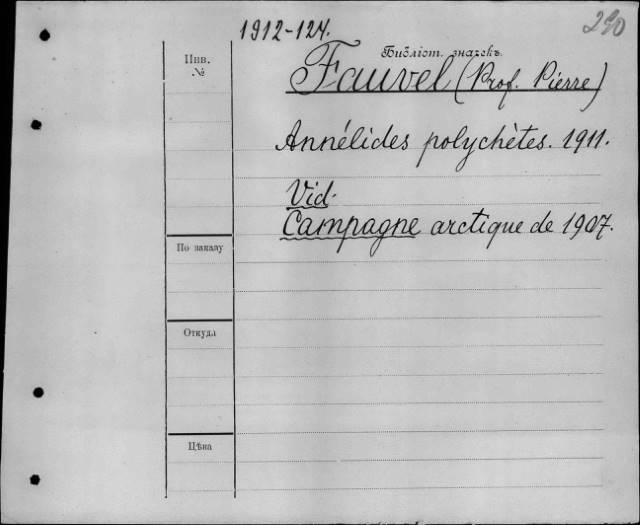 1912-124.
290
Инв.
№
Библіот. значекъ.
Fauvel (Prof. Pierre)
Annélides polychètes. 1911.
Vid.
Campagne arctique de 1907.
По заказу
Откуда
Цѣна